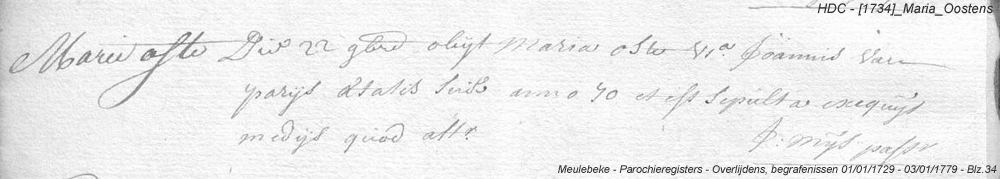 HDC - [1734]_Maria_Oostens
Marie oste Die 22 9bris obijt Maria oste vid.a Joannis Van
parijs ætatis suæ anno 70 et est sepulta exequijs
medijs quod attr
Meulebeke - Parochieregisters - Overlijdens, begrafenissen 01/01/1729 - 03/01/1779 - Blz.34